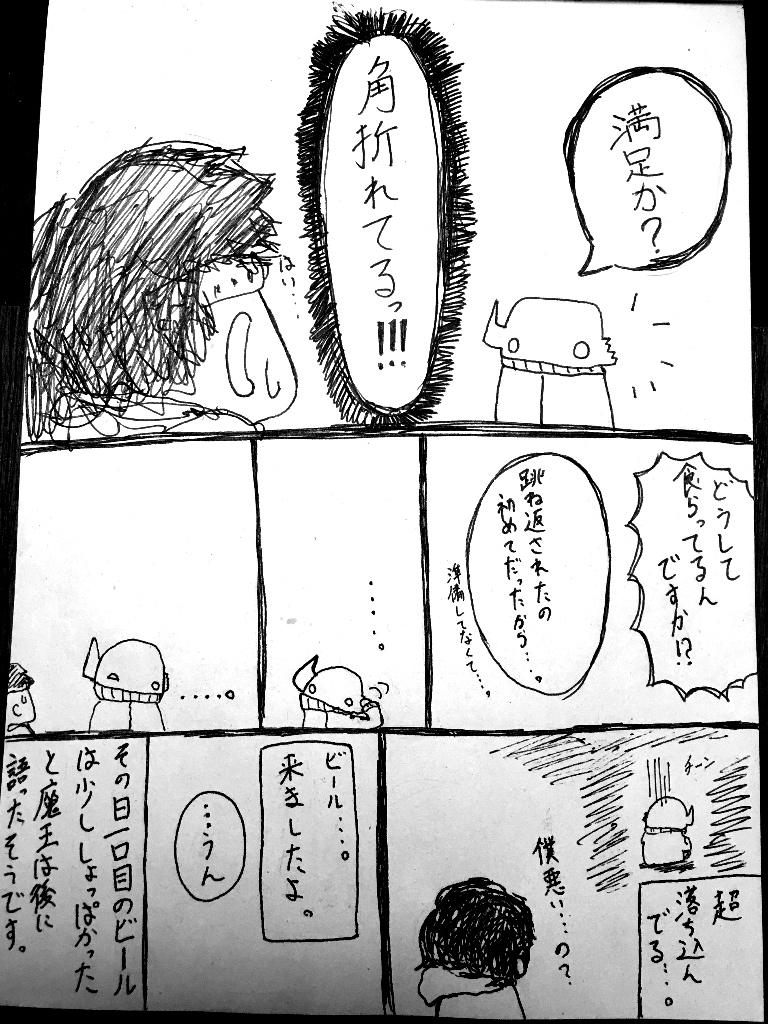 満足か？
角折れてるっ!!!
はい…
どうして
食らってるん
ですか!?
跳ね返されたの
初めてだったから…。
準備してなくて…。
……。
……。
チーン
超
落ち込ん
でる…。
僕悪い…の？
ビール…。
来ましたよ。
…うん
その日一口目のビール
は少ししょっぱかった
と魔王は後に
語ったそうです。